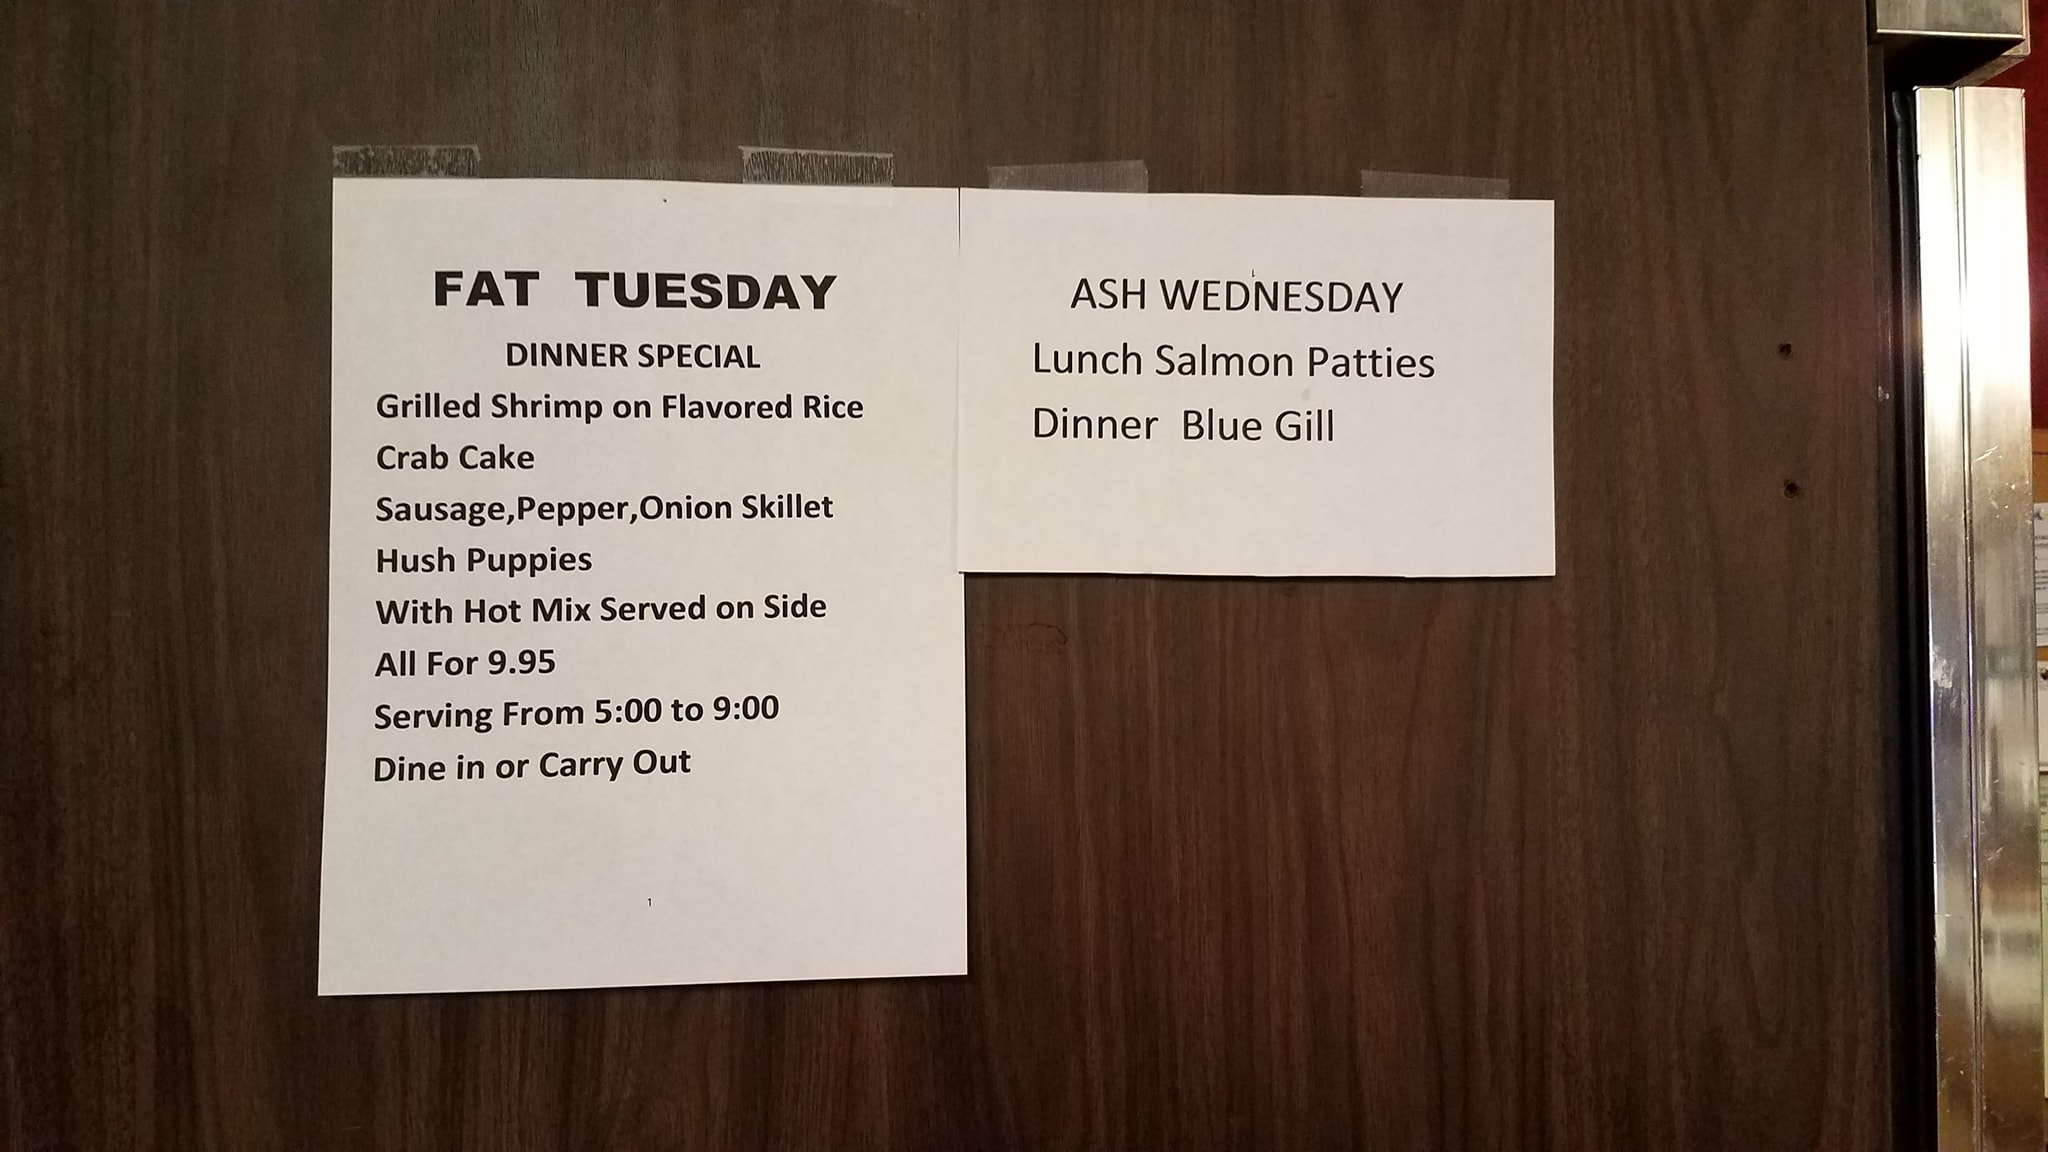 FAT TUESDAY
DINNER SPECIAL
Grilled Shrimp on Flavored Rice
Crab Cake
Sausage,Pepper,Onion Skillet
Hush Puppies
With Hot Mix Served on Side
All For 9.95
Serving From 5:00 to 9:00
Dine in or Carry Out
1
ASH WEDNESDAY
Lunch Salmon Patties
Dinner Blue Gill